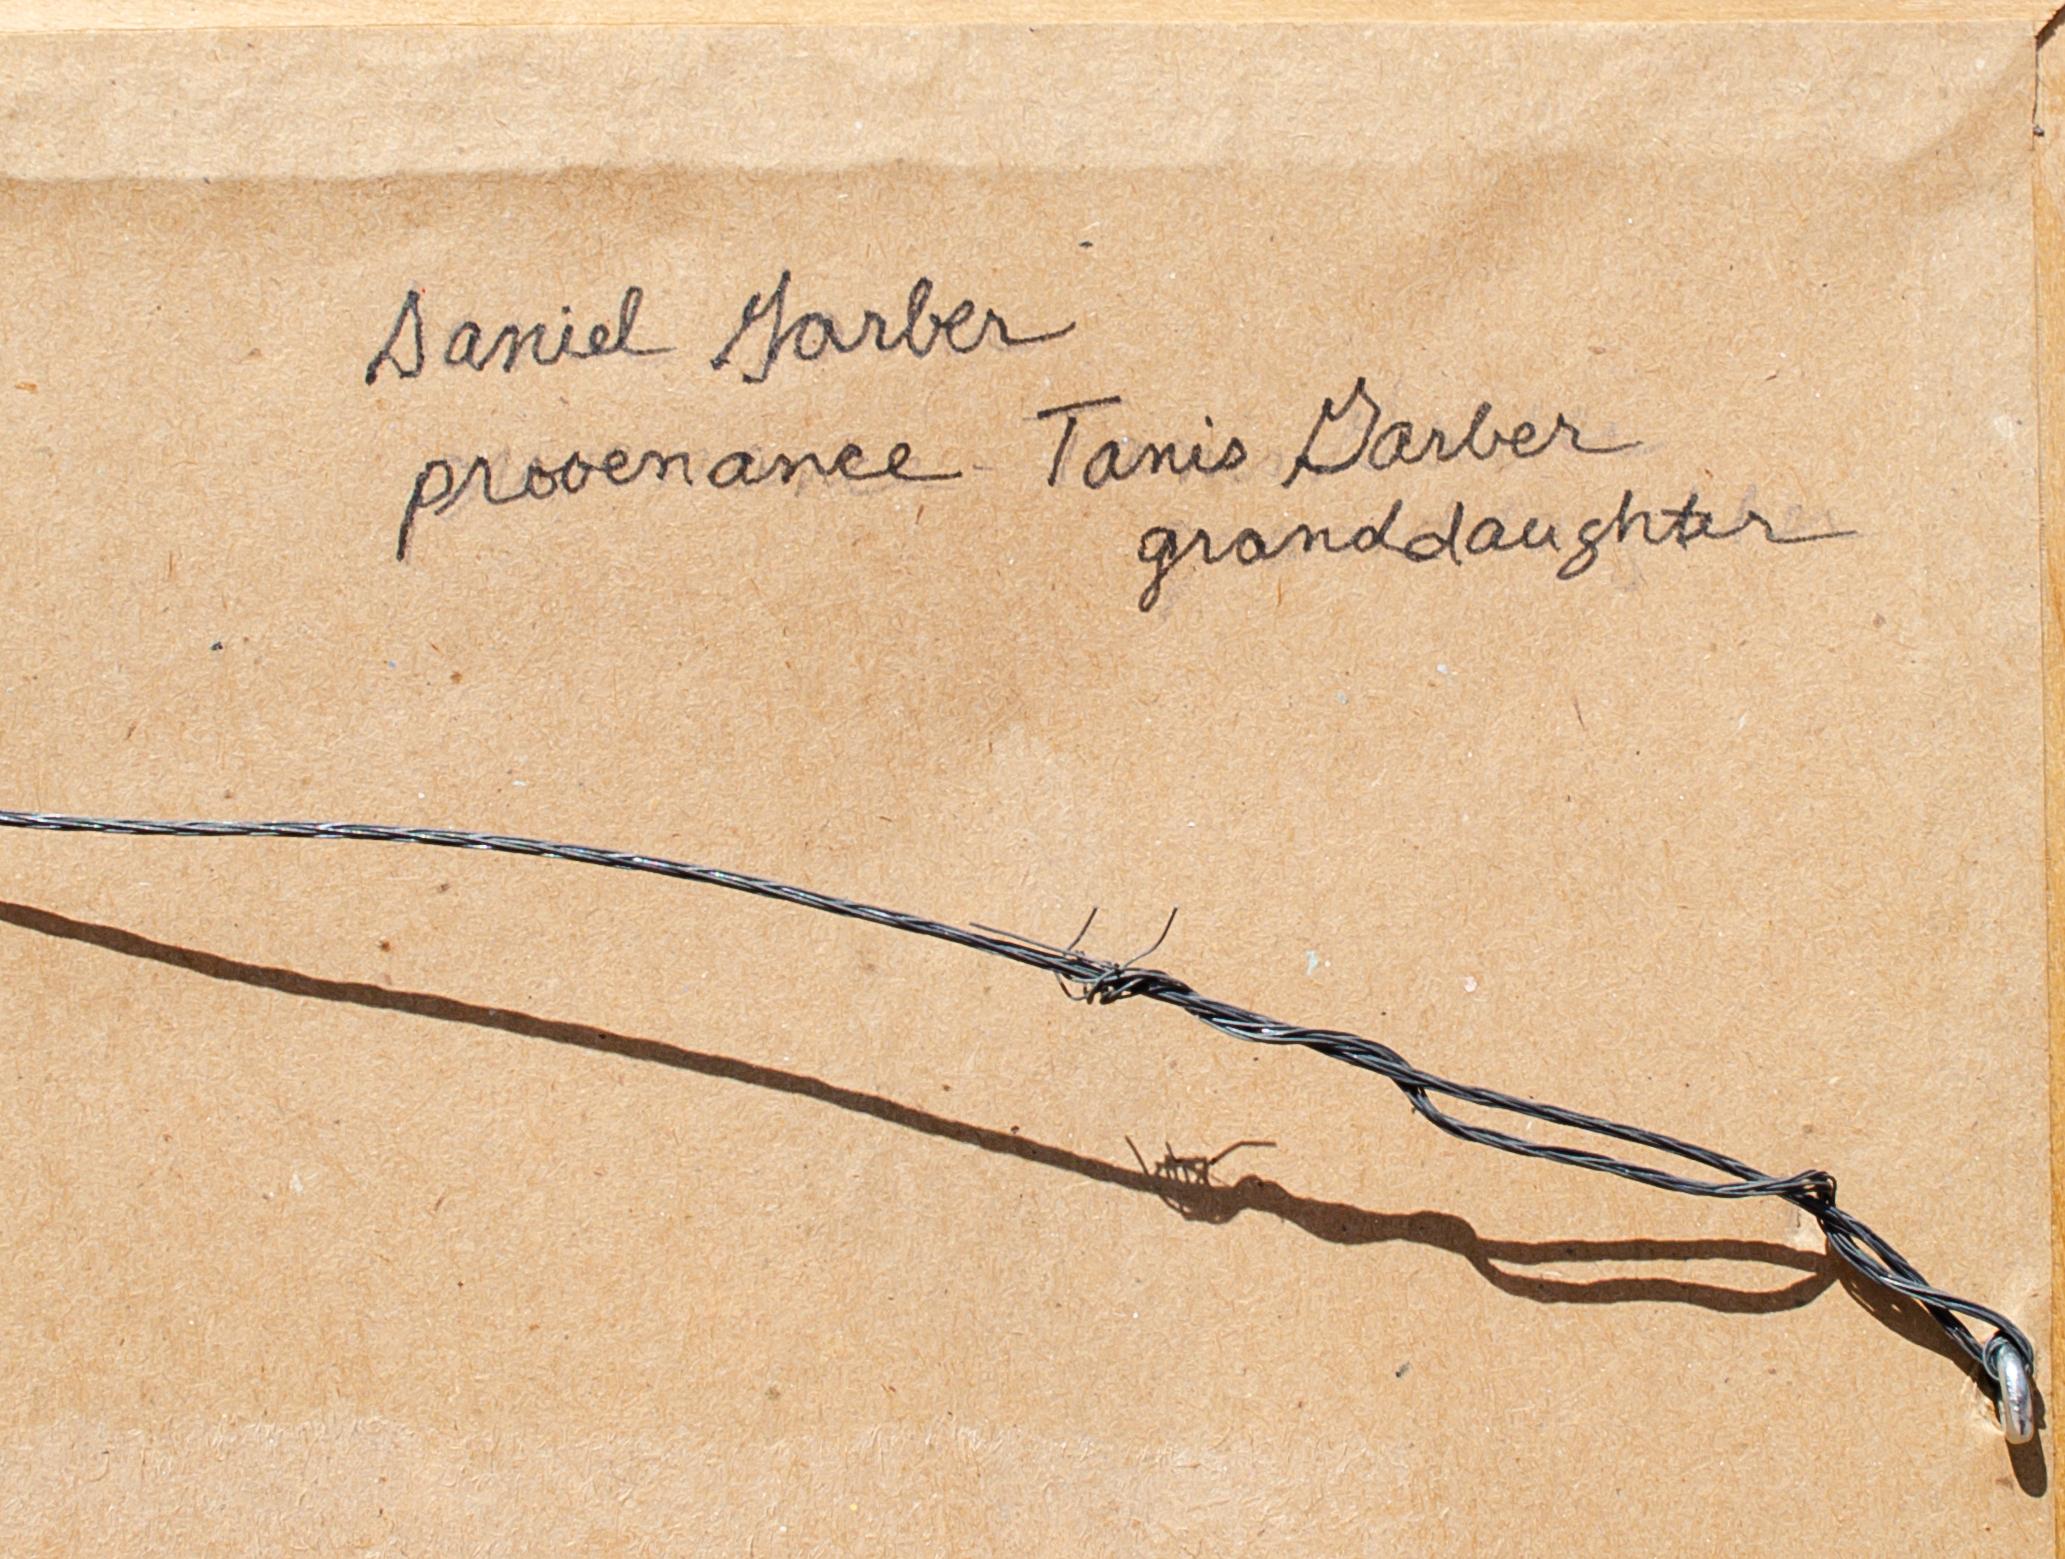 Daniel Garber
provenance - Tanis Garber
granddaughter